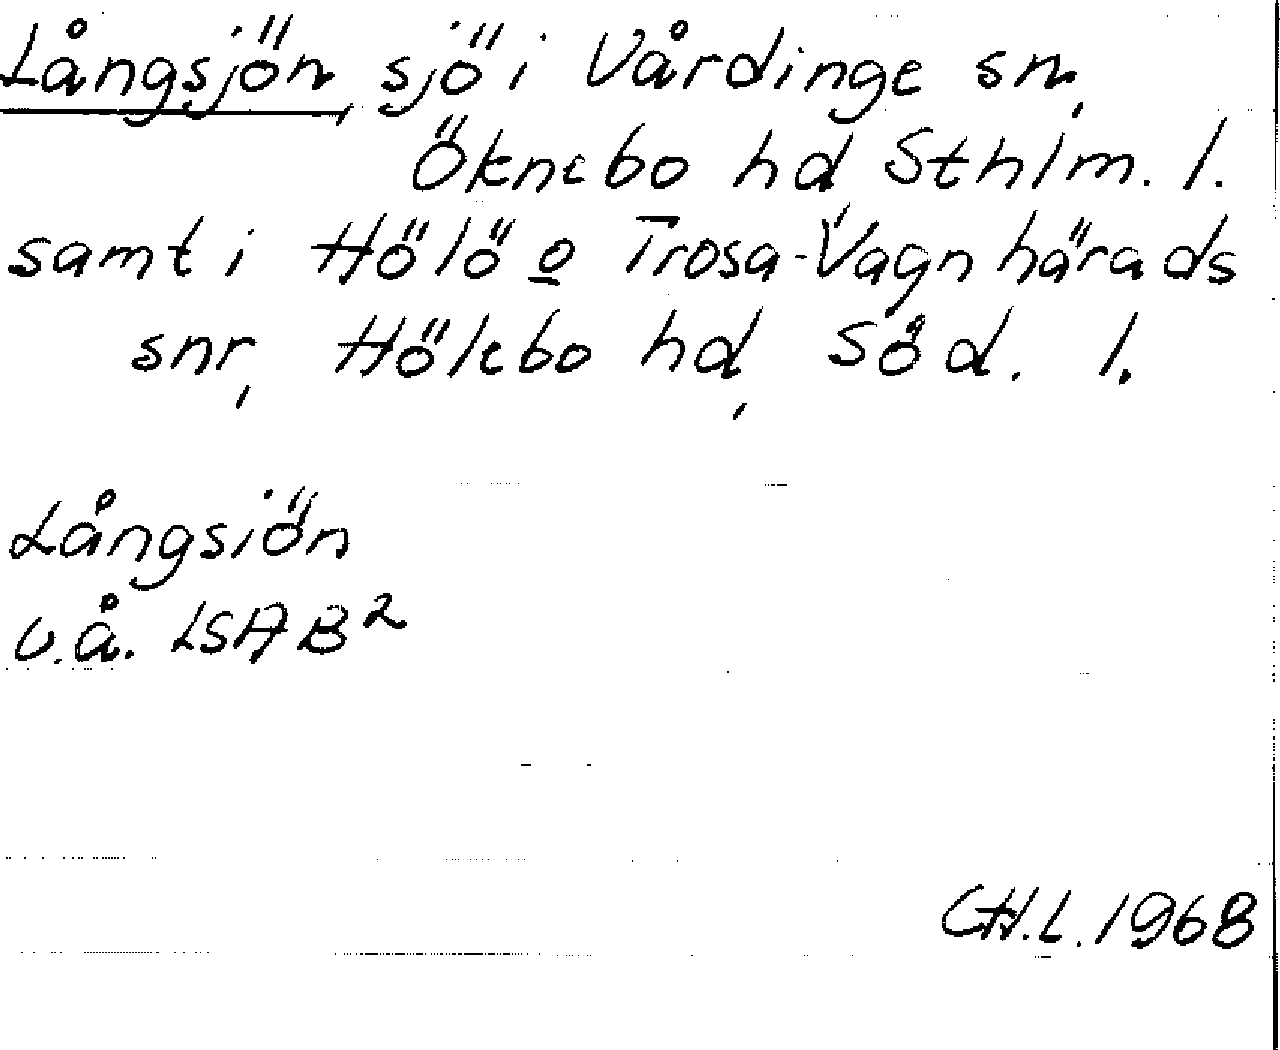 Långsjön, sjö i Vårdinge sn,
Öknebo hd Sthlm. l.
samt i Hölö o Trosa-Vagnhärads
snr, Hölebo hd, Söd. l.
Långsiön
u.å. LSA B²
CH.L. 1968